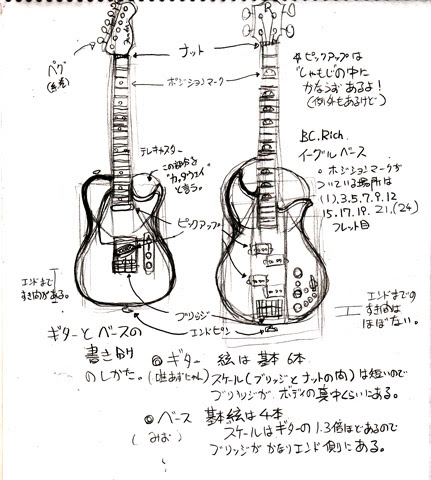 ナット
ペグ
(糸巻)
ポジションマーク
↳ピックアップは
"しゃもじの中に
かならずあるよ!
(例外もあるけど)
テレキャスター
この部分を
"カッタウェイ"
と言う。
BC.Rich.
イーグルベース
○ポジションマークが
ついている場所は
(1).3.5.7.9.12
15.17.19.21.(24)
フレット目
ピックアップ
エンドまで
すき間がある。
ブリッジ
エンドピン
エンドまでの
すき間は
ほぼない。
ギターとベースの
書き分け
のしかた。
◎ギター 弦は基本6本
(唯あずにゃん)
スケール(ブリッジとナットの間)は短いので
ブリッジが、ボディの真中くらいにある。
◎ベース 基本絃は4本
(みお)
スケールはギターの1.3倍ほどあるので
ブリッジがかなりエンド側にある。